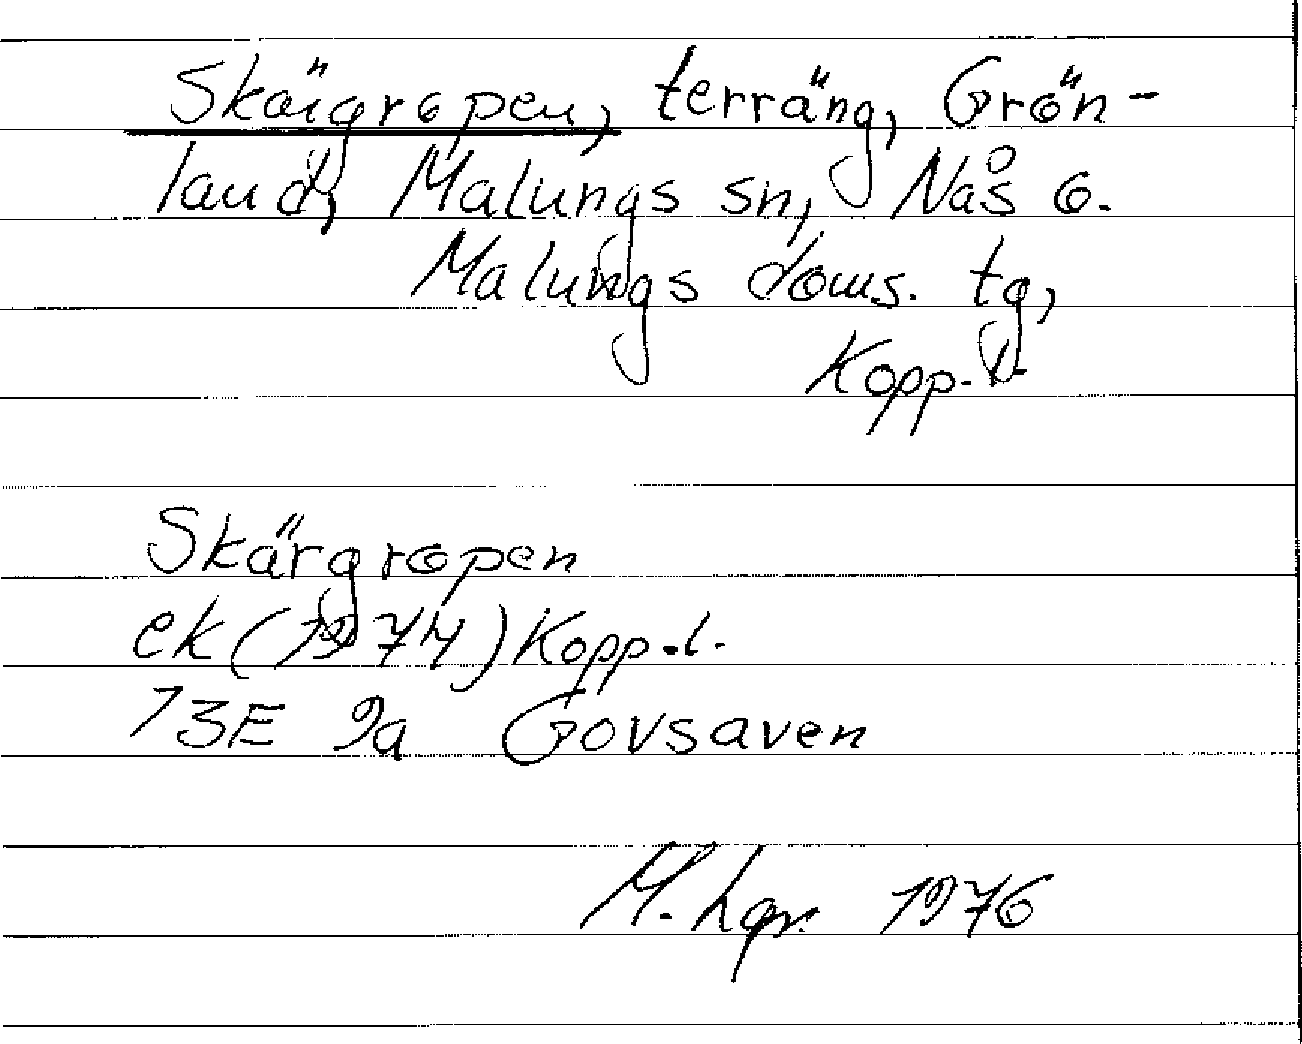 Skärgropen, terräng, Grön-
land, Malungs sn, Nås o.
Malungs doms. tg,
Kopp. l.
Skärgropen
ek (1974) Kopp. l.
13E 9a Govsaven
M. Lgr. 1976